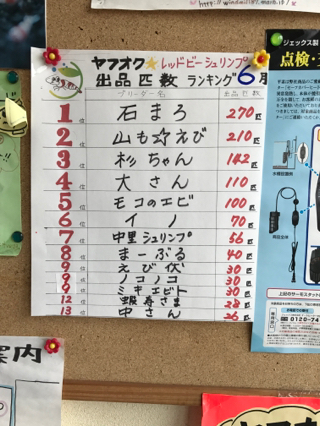 ヤフオク★レッドビーシュリンプ
出品匹数 ランキング 6月
ブリーダー名 出品匹数
1位 石まろ 270匹
2位 山も☆えび 210匹
3位 杉ちゃん 142匹
4位 大さん 110匹
5位 モコのエビ 100匹
6位 イノ 70匹
7位 中里シュリンプ 56匹
8位 まーぶる 40匹
9位 えび伏 30匹
9位 ノコノコ 30匹
9位 ミキエビト 30匹
12位 蝦寿さま 28匹
13位 中さん 26匹
案内
ジェックス製
点検・
0120-74